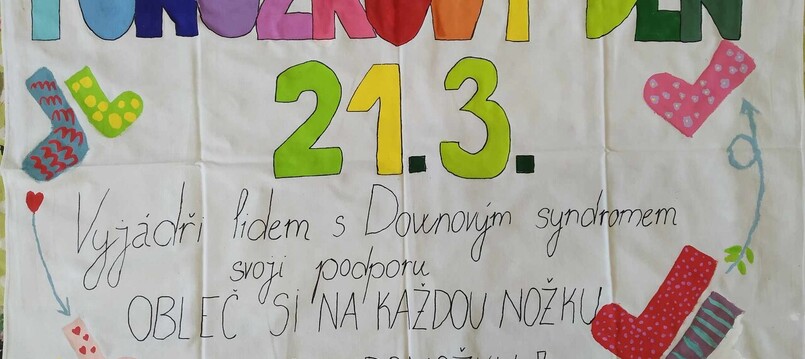 PONOŽKOVÝ DEN
21.3.
Vyjádři lidem s Downovým syndromem
svoji podporu
OBLEČ SI NA KAŽDOU NOŽKU